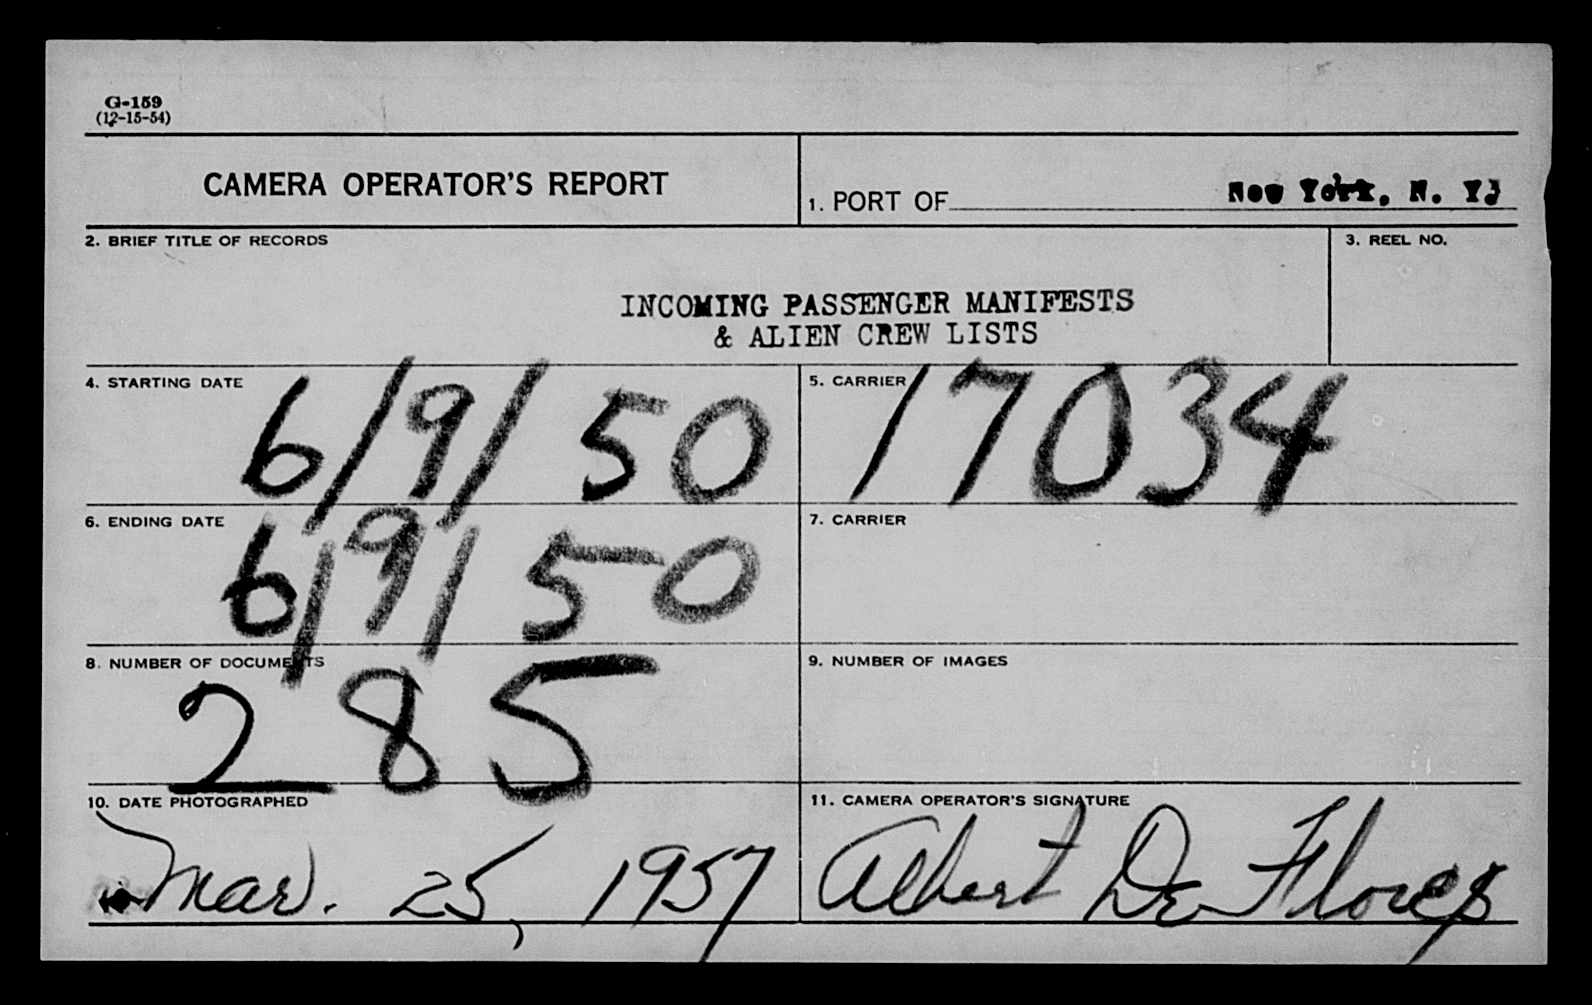 G-159
(12-15-54)
CAMERA OPERATOR'S REPORT
1. PORT OF New York, N. Y.
2. BRIEF TITLE OF RECORDS
3. REEL NO.
INCOMING PASSENGER MANIFESTS
& ALIEN CREW LISTS
4. STARTING DATE
6/9/50
5. CARRIER
17034
6. ENDING DATE
6/9/50
7. CARRIER
8. NUMBER OF DOCUMENTS
285
9. NUMBER OF IMAGES
10. DATE PHOTOGRAPHED
Mar. 25, 1957
11. CAMERA OPERATOR'S SIGNATURE
Albert De Flores